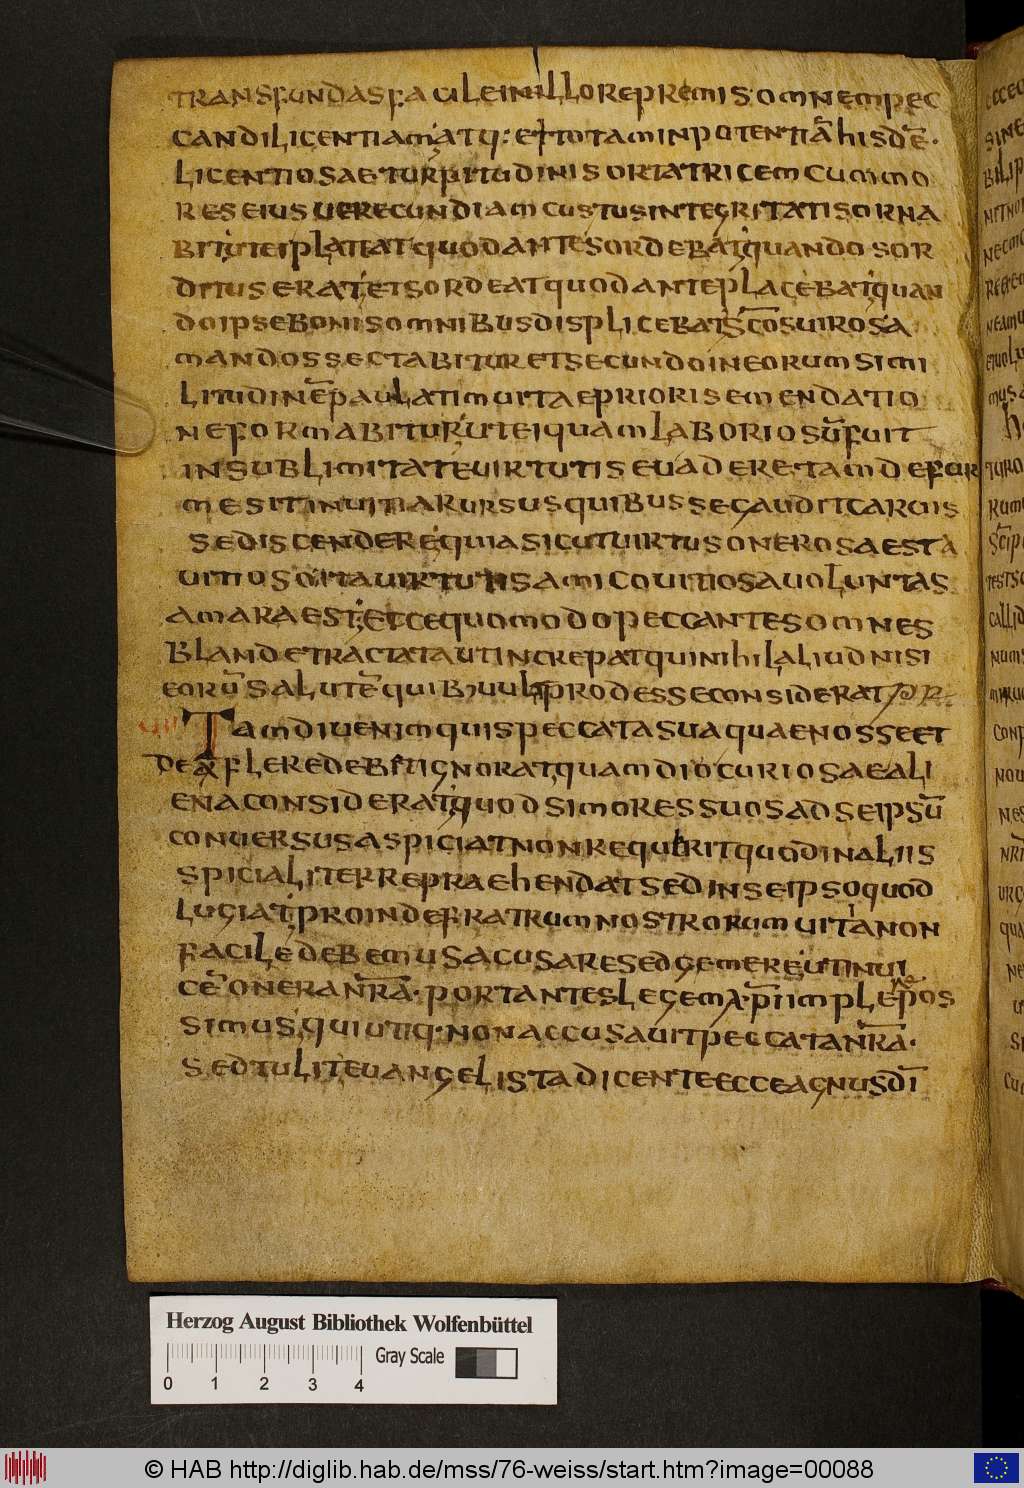 TRANSFUNDAS FACILE IN ILLO REPREMIS· OMNEM PEC
CANDI LICENTIAM ATQ: ET TOTAM INPOTENTIĀ HIS DĒ·
LICENTIOSAE TURPITUDINIS ORTATRICEM CUM MO
RES EIUS UERECUNDIAM CUSTUS INTEGRITATIS ORNA
BIT; UT EI PLACEAT QUOD ANTE SORDEBAT; QUANDO SOR
DITUS ERAT; ET SORDEAT QUOD ANTE PLACEBAT; QUAN
DO IPSE BONIS OMNIBUS DISPLICEBAT;
MANDOS SECTABITUR ET SECUNDO IN EORUM SIMI
LITUDINĒ PAULATIM UITAE PRIORIS EMENDATIO
NE FORMABITUR; UT EI QUAM LABORIOSŪ FUIT
IN SUBLIMITATE UIRTUTIS EUADERE TAM DEFOR
ME SIT IN UITIA RURSUS QUIBUS SE GAUDIT CARUIS
SE DISCENDERE; QUIA SICUT UIRTUS ONEROSA EST A
UITIOSO ITA UIRTUTIS AMICO UITIOSA UOLUNTAS
AMARA EST; ECCE QUOMODO PECCANTES OMNES
BLANDE TRACTAT AUT INCREPAT QUI NIHIL ALIUD NISI
EORŪ SALUTĒ QUIB; UULT PRODESSE CONSIDERAT
TAMDIU ENIM QUIS PECCATA SUA QUAE NOSSE ET
DEFLERE DEBIT IGNORAT, QUAMDIO CURIOSAE ALI
ENA CONSIDERAT; QUOD SI MORES SUOS AD SE IPSŪ
CONUERSUS ASPICIAT NON REQUIRIT QUOD IN ALIIS
SPICIALITER REPRAEHENDAT SED IN SE IPSO QUOD
LUGIAT; PROINDE FRATRUM NOSTRORUM UITIA NON
FACILE DEBEMUS ACUSARE SED GEMERE; UT INUI
CĒ ONERA NRĀ· PORTANTES LEGEM XPI IMPLE POS
SIMUS, QUI UTIQ· NON ACCUSAUIT PECCATA NRĀ·
SED TULIT EUANGELISTA DICENTE ECCE AGNUS DĪ
Herzog August Bibliothek Wolfenbüttel
Gray Scale
0 1 2 3 4
© HAB http://diglib.hab.de/mss/76-weiss/start.htm?image=00088